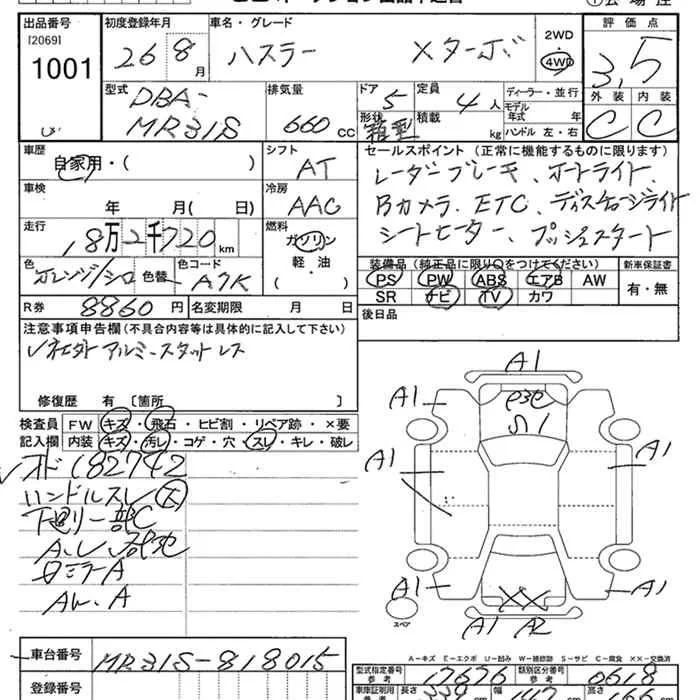 出品番号
[2069]
1001
初度登録年月
26 8 月
車名・グレード
ハスラー Xターボ
2WD
・
4WD
評価点
3.5
外装 内装
C C
型式
DBA-
MR31S
排気量
660 cc
ドア
5
定員
4 人
形状
箱型
積載
kg
ディーラー・並行
モデル
年式 年
ハンドル 左・右
車歴
自家用・( )
シフト
AT
車検
年 月( 日)
冷房
AAC
走行
18万2千720km
燃料
ガソリン
・
軽・油
色
オレンジ/シロ
色替
色コード
A7K
R券
8860円
名変期限 月 日
セールスポイント(正常に機能するものに限ります)
レーダーブレーキ、オートライト、
Bカメラ、ETC、ディスチャージライト
シートヒーター、プッシュスタート
装備品(純正品に限り○をつけてください)
新車保証書
PS PW ABS エアB AW
SR ナビ TV カワ
有・無
後日品
注意事項申告欄(不具合内容等は具体的に記入して下さい)
アルミ・スタットレス
修復歴 有〔箇所 〕
検査員
記入欄
FW キズ・飛石・ヒビ割・リペア跡・×要
内装 キズ・汚レ・コゲ・穴・スレ・キレ・破レ
182742
ハンドルスレ 大
下廻り一部C
A.
A
A
A1
A1
A1
A1
A1
A1
A1
A1
A2
XX
スペア
車台番号
MR31S-818015
登録番号
A-キズ E-エクボ U-凹み W-補修跡 S-サビ C-腐食 XX-交換済
型式指定番号
参考
17676
類別区分番号
参考
0618
車庫証明用
参考
長さ
339 cm
幅
147 cm
高さ